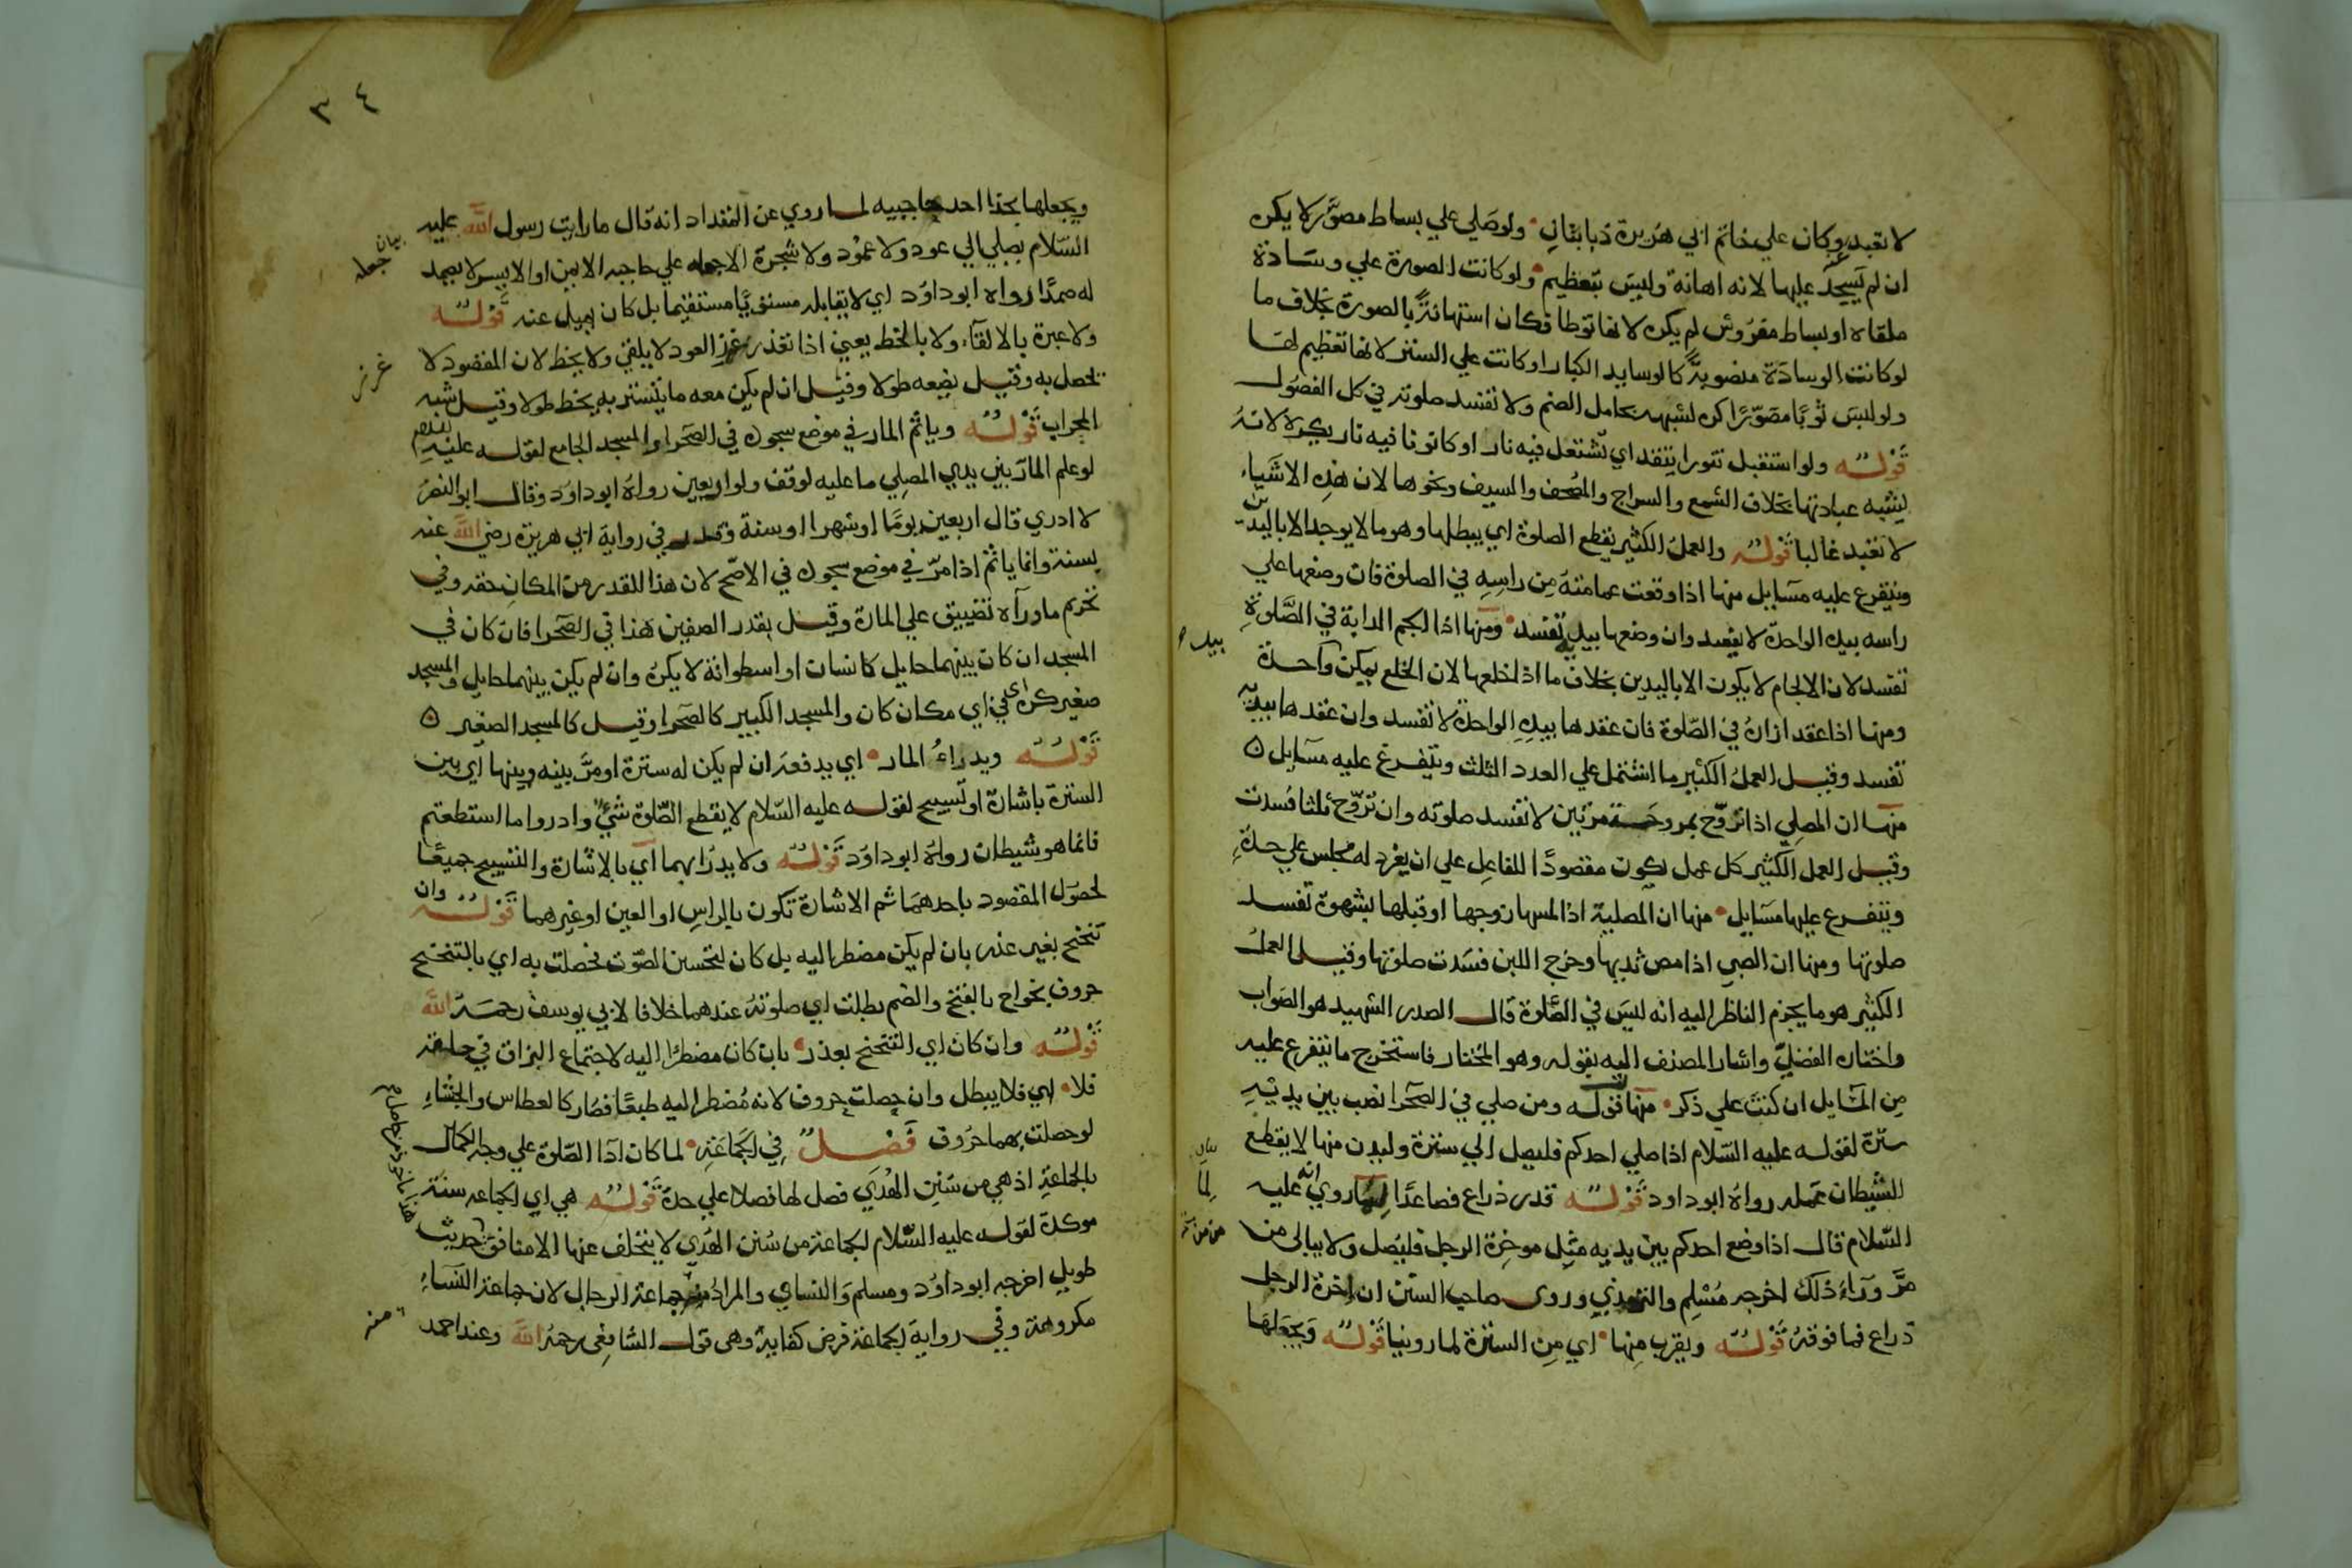 لا تعبد وكان علي خاتم ابي هريرة ذبابتان ولو صلي علي بساط مصوّر لا يكره
ان لم يسجد عليها لانه اهانة وليس بتعظيم ولو كانت الصورة علي وسادة
ملقاه او بساط مفروش لم يكره لانها توطا فكان استهانةً بالصورة بخلاف ما
لو كانت الوسادة منصوبةً كالوسايد الكبار او كانت علي الستر لانها تعظيم لها
ولو لبس ثوبًا مصوّرًا كره لشبهه بحامل الصنم ولا تفسد صلوته في كل الفصول
قوله ولو استقبل تنورا يتقد اي تشتعل فيه نار او كانونا فيه نار يكره لانه
يشبه عبادتها بخلاف الشمع والسراج والمصحف والسيف ونحوها لان هذه الاشياء
لا تعبد غالبا قوله والعمل الكثير يقطع الصلوة اي يبطلها وهو ما لا يوجد الا باليدين
ويتفرع عليه مسايل منها اذا وقعت عمامته من راسه في الصلوة فان وضعها علي
راسه بيده الواحدة لا يفسد وان وضعها بيديه تفسد ومنها اذا الجم الدابة في الصلوة
تفسد لان الالجام لا يكون الا باليدين بخلاف ما اذا خلعها لان الخلع يمكن بواحدة
ومنها اذا عقد ازاره في الصلوة فان عقدها بيده الواحدة لا تفسد وان عقدها بيديه
تفسد وقيل العمل الكثير ما اشتمل علي العدد الثلث ويتفرع عليه مسايل ه
منها ان المصلي اذا تروّح بمروحة مرتين لا تفسد صلوته وان تروّح ثلثا فسدت
وقيل العمل الكثير كل عمل يكون مقصودًا للفاعل علي ان يفرد له مجلس علي حدة
ويتفرع عليها مسايل منها ان المصلية اذا لمسها زوجها او قبلها بشهوة تفسد
صلوتها ومنها ان الصبي اذا مص ثديها وخرج اللبن فسدت صلوتها وقيل العمل
الكثير هو ما يجزم الناظر اليه انه ليس في الصلوة قال الصدر الشهيد هو الصواب
واختاره الفضلي واشار المصنف اليه بقوله وهو المختار فاستخرج ما يتفرع عليه
من المسايل ان كنت علي ذكر منها قوله ومن صلي في الصحرا نصب بين يديه
سترة لقوله عليه السلام اذا صلي احدكم فليصل الي سترة وليدن منها لا يقطع
الشيطان عمله رواه ابو داود قوله قدر ذراع فصاعدًا لما روي انه عليه
السلام قال اذا وضع احدكم بين يديه مثل موخرة الرحل فليصل ولا يبالي من
مرّ وراء ذلك اخرجه مسلم والترمذي وروي صاحب السنن ان اخرة الرحل
ذراع فما فوقه قوله ويقرب منها اي من السترة لما روينا قوله ويجعلها
بيده
بيان
لما
٣٤
ويجعلها بحذا احد حاجبيه لما روي عن المقداد انه قال ما رايت رسول الله عليه
السلام يصلي الي عود ولا عمود ولا شجرة الا جعله علي حاجبه الايمن او الايسر لا يصمد
له صمدًا رواه ابو داود اي لا يقابله مستويًا مستقيما بل كان يميل عنه قوله
ولا عبرة بالالقاء ولا بالخط يعني اذا تعذر غرز العود لا يلقي ولا يخط لان المقصود لا
يحصل به وقيل يضعه طولا وقيل ان لم يكن معه ما يستتر به يخط طولا وقيل شبه
المحراب قوله وياثم المار في موضع سجوده في الصحرا او المسجد الجامع لقوله عليه السلام
لو علم المار بين يدي المصلي ما عليه لوقف ولو اربعين رواه ابو داود وقال ابو النضر
لا ادري قال اربعين يومًا او شهرا او سنة وقدر في رواية ابي هريرة رضي الله عنه
بسنة وانما ياثم اذا مرّ في موضع سجوده في الاصح لان هذا القدر من المكان حقه وفي
تحريم ما وراه تضييق علي المارة وقيل بقدر الصفين هذا في الصحرا فان كان في
المسجد ان كان بينهما حايل كانسان او اسطوانة لا يكره وان لم يكن بينهما حايل والمسجد
صغير كره في اي مكان كان والمسجد الكبير كالصحرا وقيل كالمسجد الصغير ه
قوله ويدراء المار اي يدفعه ان لم يكن له سترة او مرّ بينه وبينها اي بين
السترة باشارة او تسبيح لقوله عليه السلام لا يقطع الصلوة شيء وادروا ما استطعتم
فانما هو شيطان رواه ابو داود قوله ولا يدرا بهما اي بالاشارة والتسبيح جميعًا
لحصول المقصود باحدهما ثم الاشارة تكون بالراس او العين او غيرهما قوله وان
تنحنح بغير عذر بان لم يكن مضطرا اليه بل كان لتحسين الصوت فحصلت به اي بالتنحنح
حروف نحو اح بالفتح والضم بطلت اي صلوته عندهما خلافا لابي يوسف رحمه الله
قوله وان كان اي التنحنح بعذر بان كان مضطرًا اليه لاجتماع البزاق في حلقه
فلا اي فلا يبطل وان حصلت حروف لانه مضطر اليه طبعًا فصار كالعطاس والجشاء
لو حصلت بهما حروف فصل في الجماعة لما كان ادا الصلوة علي وجه الكمال
بالجماعة اذ هي من سنن الهدي فصل لها فصلا علي حدة قوله هي اي الجماعه سنة
موكدة لقوله عليه السلام الجماعة من سنن الهدي لا يتخلف عنها الا منافق حديث
طويل اخرجه ابو داود ومسلم والنساي والمراد منه جماعة الرجال لان جماعة النساء
مكروهة وفي رواية الجماعة فرض كفاية وهي قول الشافعي رحمه الله وعند احمد
بيان
جعله
غرز
منه